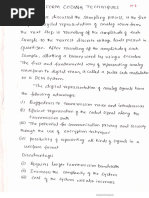 FORM CODING TECHNIQUES
discussed the sampling process, is the first
digital representation of analog signal, then
the next step is recording of the amplitude of each
Sample to the nearest discrete voltage level present in
quantizer. After recording of the amplitude of each
Sample, obtaining a binary code by using encoder.
The digital representation of analog signal obtained
this way of transmission is called a pulse code modulation
or PCM System.
"The digital representation of analog signals has
the following advantages.
(i) Ruggedness to transmission noise and interference
(ii) Efficient regeneration of the coded signal along the
transmission path.
(iii) The potential for communication privacy and security
through the use of encryption technique.
(iv) possibility of representing all kinds of signals in a
uniform format.
Disadvantages
(i) Requires larger transmission bandwidth
(ii) Increases the complexity of the system
(iii) Cost of the system will be increases